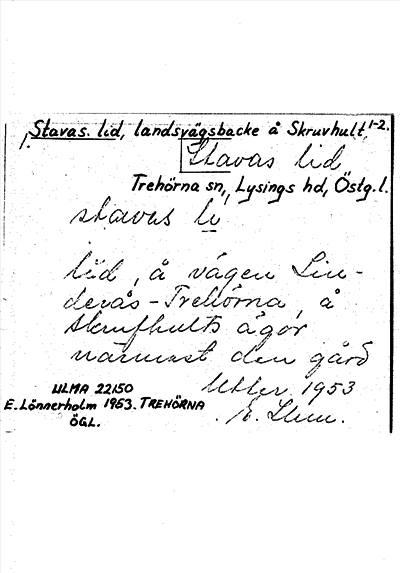 1. Stavas lid, landsvägsbacke å Skruvhult, 1-2.
Stavas lid
Trehörna sn, Lysings hd, Östg.l.
stavas li
lid, å vägen Lin-
derås-Trehörna, å
Skrufhults ägor
närmast den gård
1953
ULMA 22150
E. Lönnerholm 1953. TREHÖRNA
ÖGL.
E. Lhm.